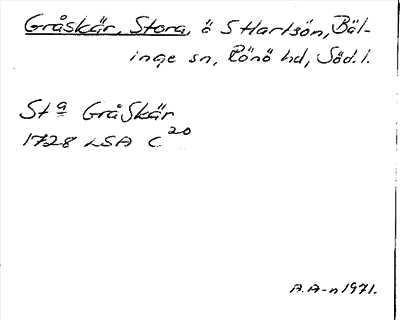 Gråskär, Stora, ö S Hartsön, Bäl-
inge sn, Rönö hd, Söd. l.
St a GråSkär
1728 LSA C 20
A.A-n 1971.